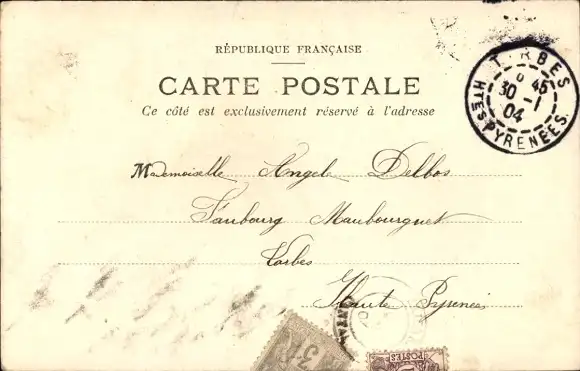 RÉPUBLIQUE FRANÇAISE
CARTE POSTALE
Ce côté est exclusivement réservé à l'adresse
TARBES
45
30 -1
04
HTES PYRENEES
Mademoiselle Angele Delbos
Faubourg Maubourguet
Tarbes
Haute Pyrenées
POSTES